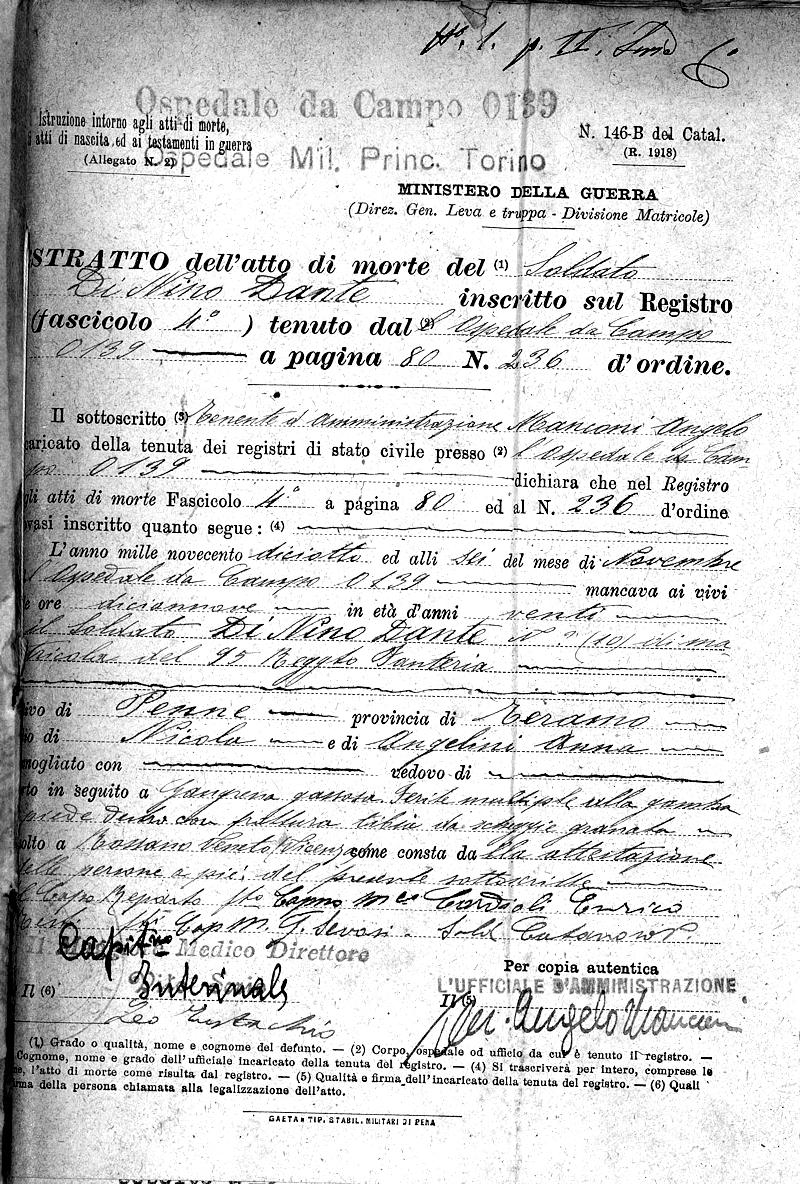 N. 1. p. II. Serie C
Ospedale da Campo 0139
Istruzione intorno agli atti di morte,
i atti di nascita ed ai testamenti in guerra
(Allegato N. 2)
Ospedale Mil. Princ. Torino
N. 146-B del Catal.
(R. 1918)
MINISTERO DELLA GUERRA
(Direz. Gen. Leva e truppa - Divisione Matricole)
STRATTO dell'atto di morte del (1) Soldato
Di Nino Dante inscritto sul Registro
(fascicolo 4° ) tenuto dal (2) l'Ospedale da Campo
0139 a pagina 80 N. 236 d'ordine.
Il sottoscritto (3) Tenente d'Amministrazione Manconi Angelo
caricato della tenuta dei registri di stato civile presso (2) l'Ospedale da Cam
po 0139 dichiara che nel Registro
gli atti di morte Fascicolo 4° a pagina 80 ed al N. 236 d'ordine
ovasi inscritto quanto segue: (4)
L'anno mille novecento diciotto ed alli sei del mese di Novembre
l'Ospedale da Campo 0139 mancava ai vivi
e ore diciannove in età d'anni venti
il Soldato Di Nino Dante N° ? (10) di ma
tricola del 95 Reggto Fanteria
ivo di Penne provincia di Teramo
io di Nicola e di Angelini Anna
mogliato con vedovo di
rto in seguito a Gangrena gassosa. Ferite multiple alla gamba
piede destro con frattura tibia da scheggie granata
polto a Rossano Veneto (Vicenza) come consta da lla attestazione
delle persone a piè del presente sottoscritte
l Capo Reparto fto Capno Mco Cardioli Enrico
fti Cap M. G. Sold
Il Medico Direttore
Capitno
Interinale
Il (6)
Leo Eustachio
Per copia autentica
L'UFFICIALE D'AMMINISTRAZIONE
Il (5)
Ten. Angelo Manconi
(1) Grado o qualità, nome e cognome del defunto. — (2) Corpo, ospedale od ufficio da cui è tenuto il registro. —
Cognome, nome e grado dell'ufficiale incaricato della tenuta del registro. — (4) Si trascriverà per intero, comprese le
e, l'atto di morte come risulta dal registro. — (5) Qualità e firma dell'incaricato della tenuta del registro. — (6) Quali
irma della persona chiamata alla legalizzazione dell'atto.
GAETA - TIP. STABIL. MILITARI DI PENA